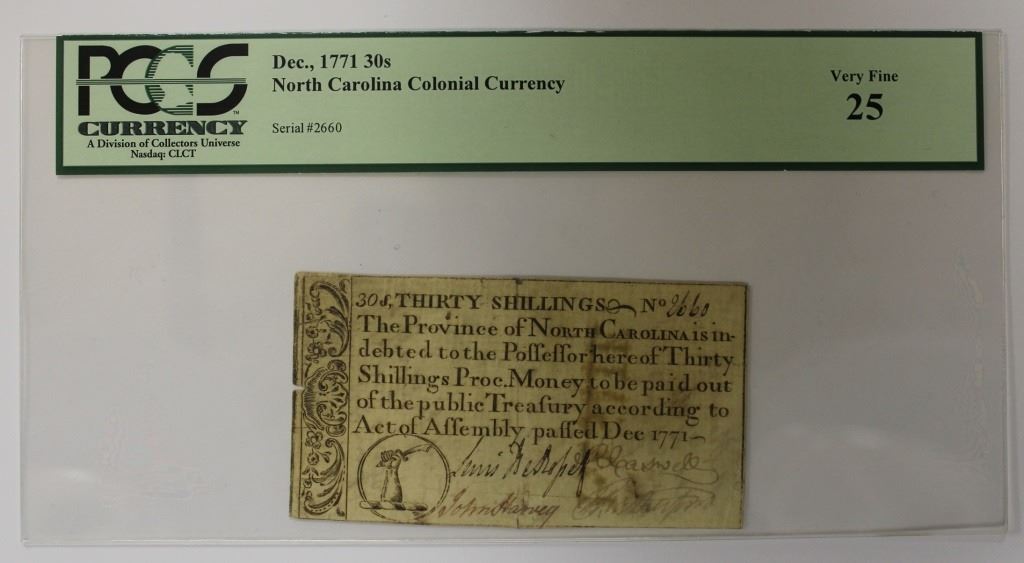 PCGS™
CURRENCY
A Division of Collectors Universe
Nasdaq: CLCT
Dec., 1771 30s
North Carolina Colonial Currency
Serial #2660
Very Fine
25
30s, THIRTY SHILLINGS No 2660
The Province of NORTH CAROLINA is in-
debted to the Poſſeſſor hereof Thirty
Shillings Proc. Money to be paid out
of the public Treaſury according to
Act of Aſſembly paſſed Dec 1771
Lewis DeRoſſet
John Harvey